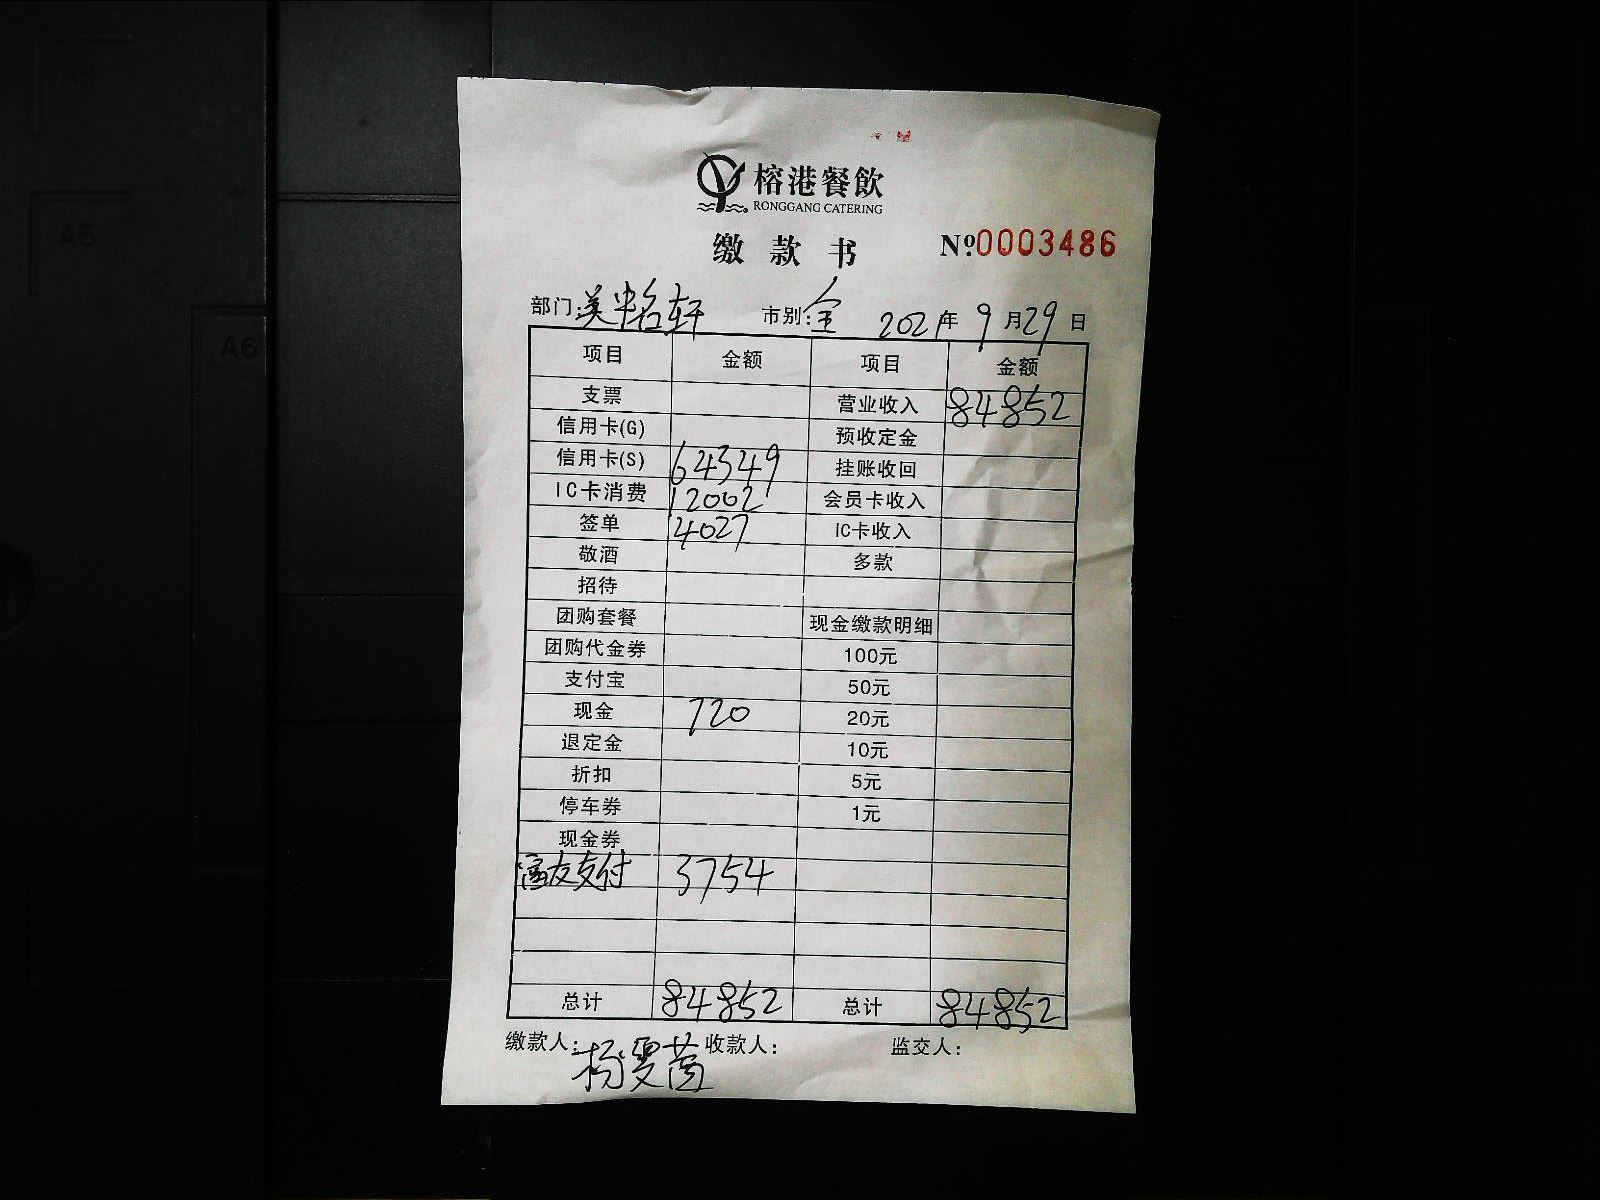 A4
A5
A6
榕港餐飲
RONGGANG CATERING
缴款书 №0003486
部门: 美半名轩 市别: 全 2021年 9月29日
项目 金额 项目 金额
支票 营业收入 84852
信用卡(G) 预收定金
信用卡(S) 64349 挂账收回
IC卡消费 12002 会员卡收入
签单 4027 IC卡收入
敬酒 多款
招待
团购套餐 现金缴款明细
团购代金券 100元
支付宝 50元
现金 720 20元
退定金 10元
折扣 5元
停车券 1元
现金券
富友支付 3754
总计 84852 总计 84852
缴款人: 杨雯茵 收款人: 监交人: